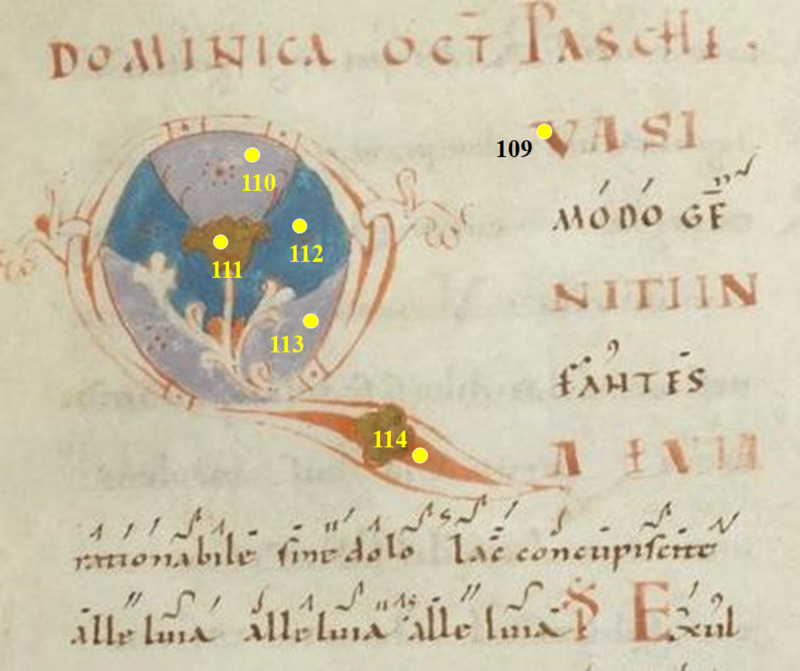 DOMINICA OCT̄ PASCHE.
Q VASI
109
110
MODO GE
111
112
NITI IN
113
FANTES
114
A EVIA
rationabile sine dolo lac concupiscite
alleluia alleluia alleluia Ps Exul